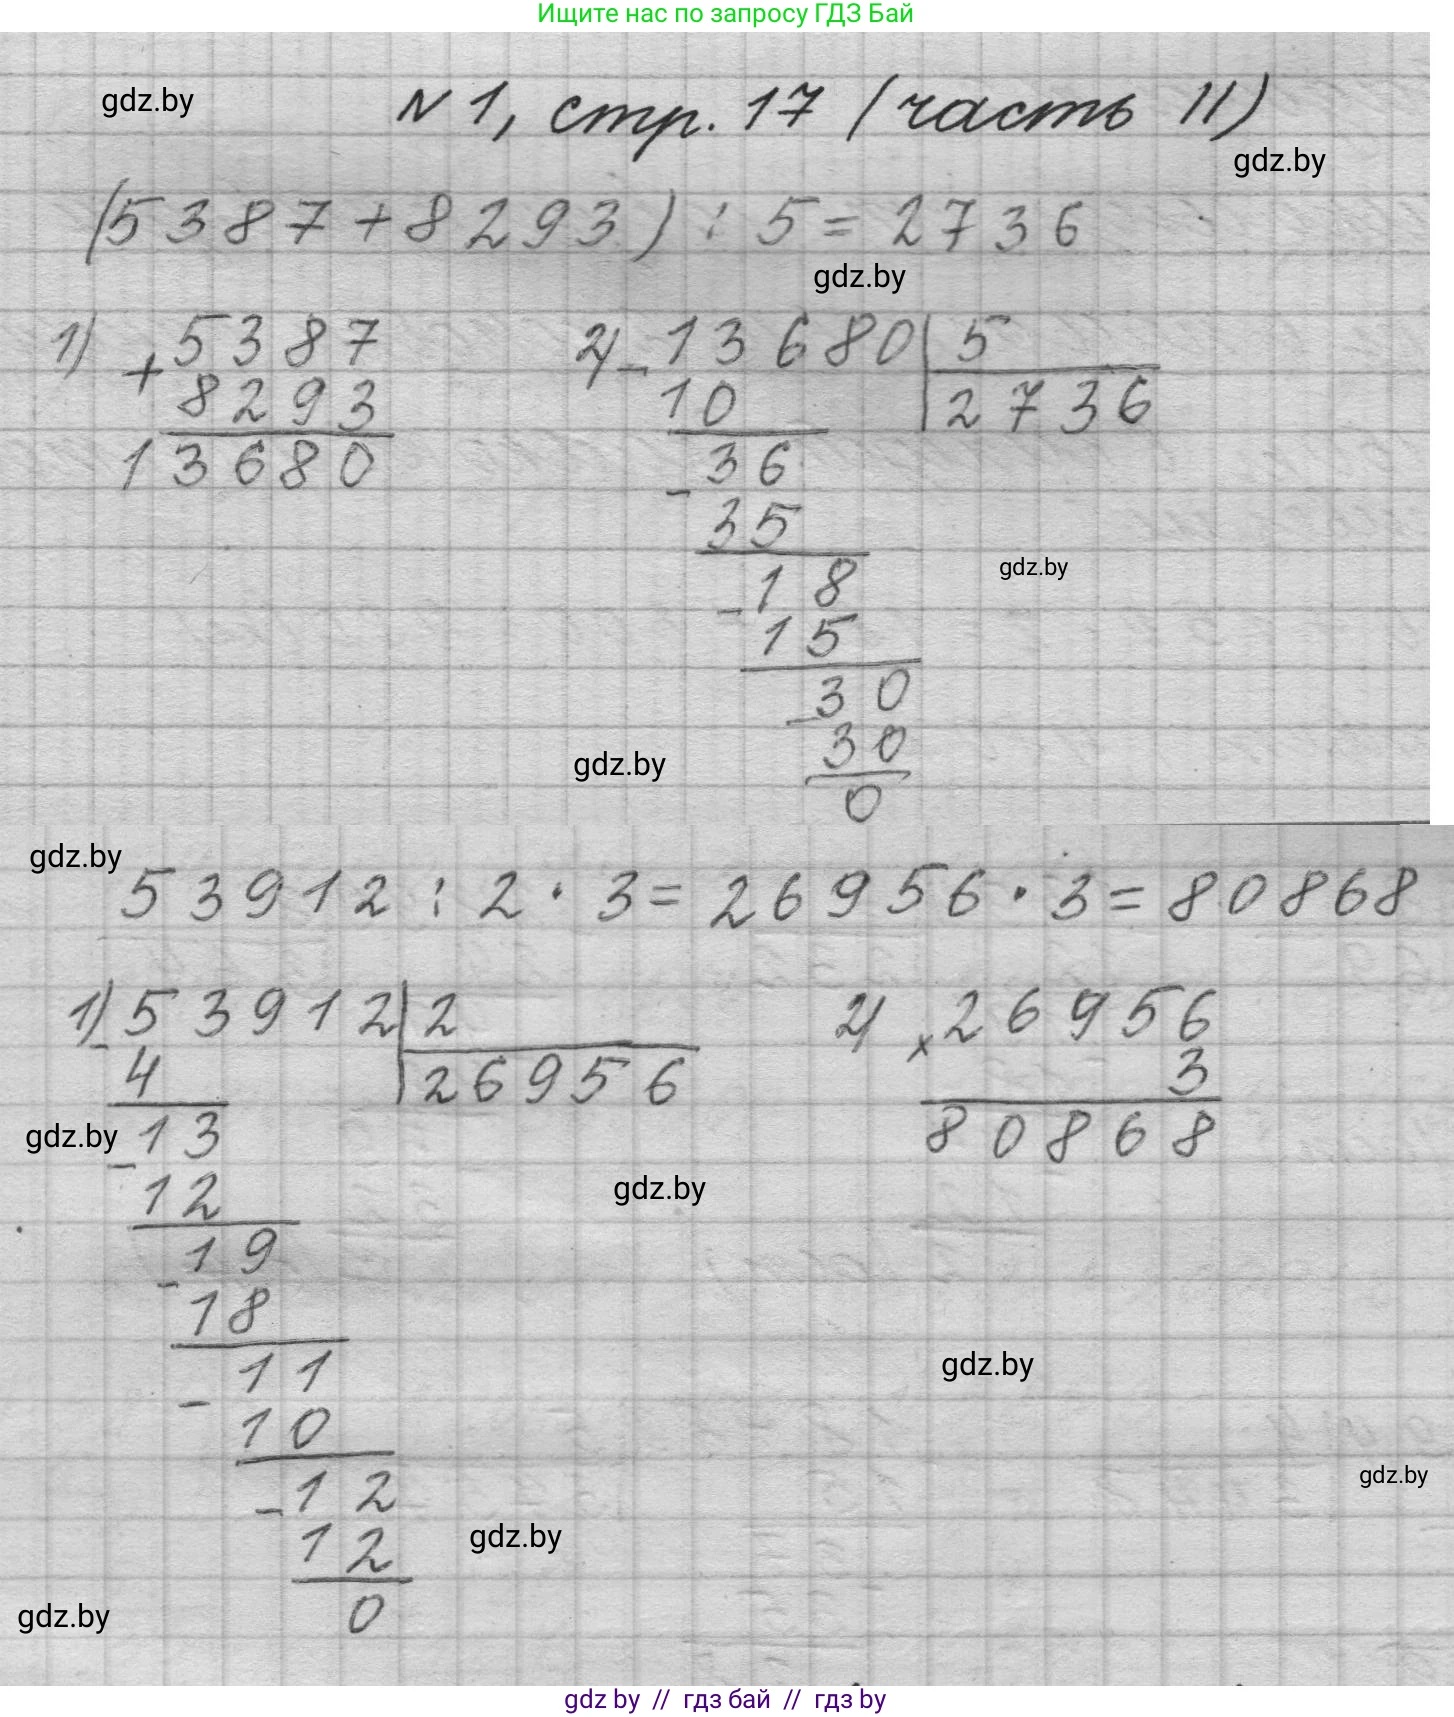 Ищите нас по запросу ГДЗ Бай
gdz.by
N 1, стр. 17 (часть II)
gdz.by
(5387+8293) : 5 = 2736
gdz.by
1) + 5387
8293
13680
2) - 13680 | 5
10 | 2736
- 36
35
gdz.by
- 18
15
- 30
30
gdz.by
0
gdz.by
53912 : 2 · 3 = 26956 · 3 = 80868
1) - 53912 | 2
4 | 26956
gdz.by
- 13
12
- 19
18
- 11
10
- 12
12
0
2) x 26956
3
80868
gdz.by
gdz.by
gdz.by
gdz.by
gdz.by
gdz by // гдз бай // гдз by